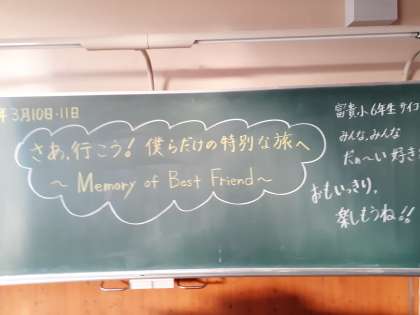 年3月10日・11日
さあ、行こう！僕らだけの特別な旅へ
～ Memory of Best Friend ～
富貴小6年生 サイコ
みんな、みんな
だぁ～い好き
おもいっきり、
楽しもうね!!